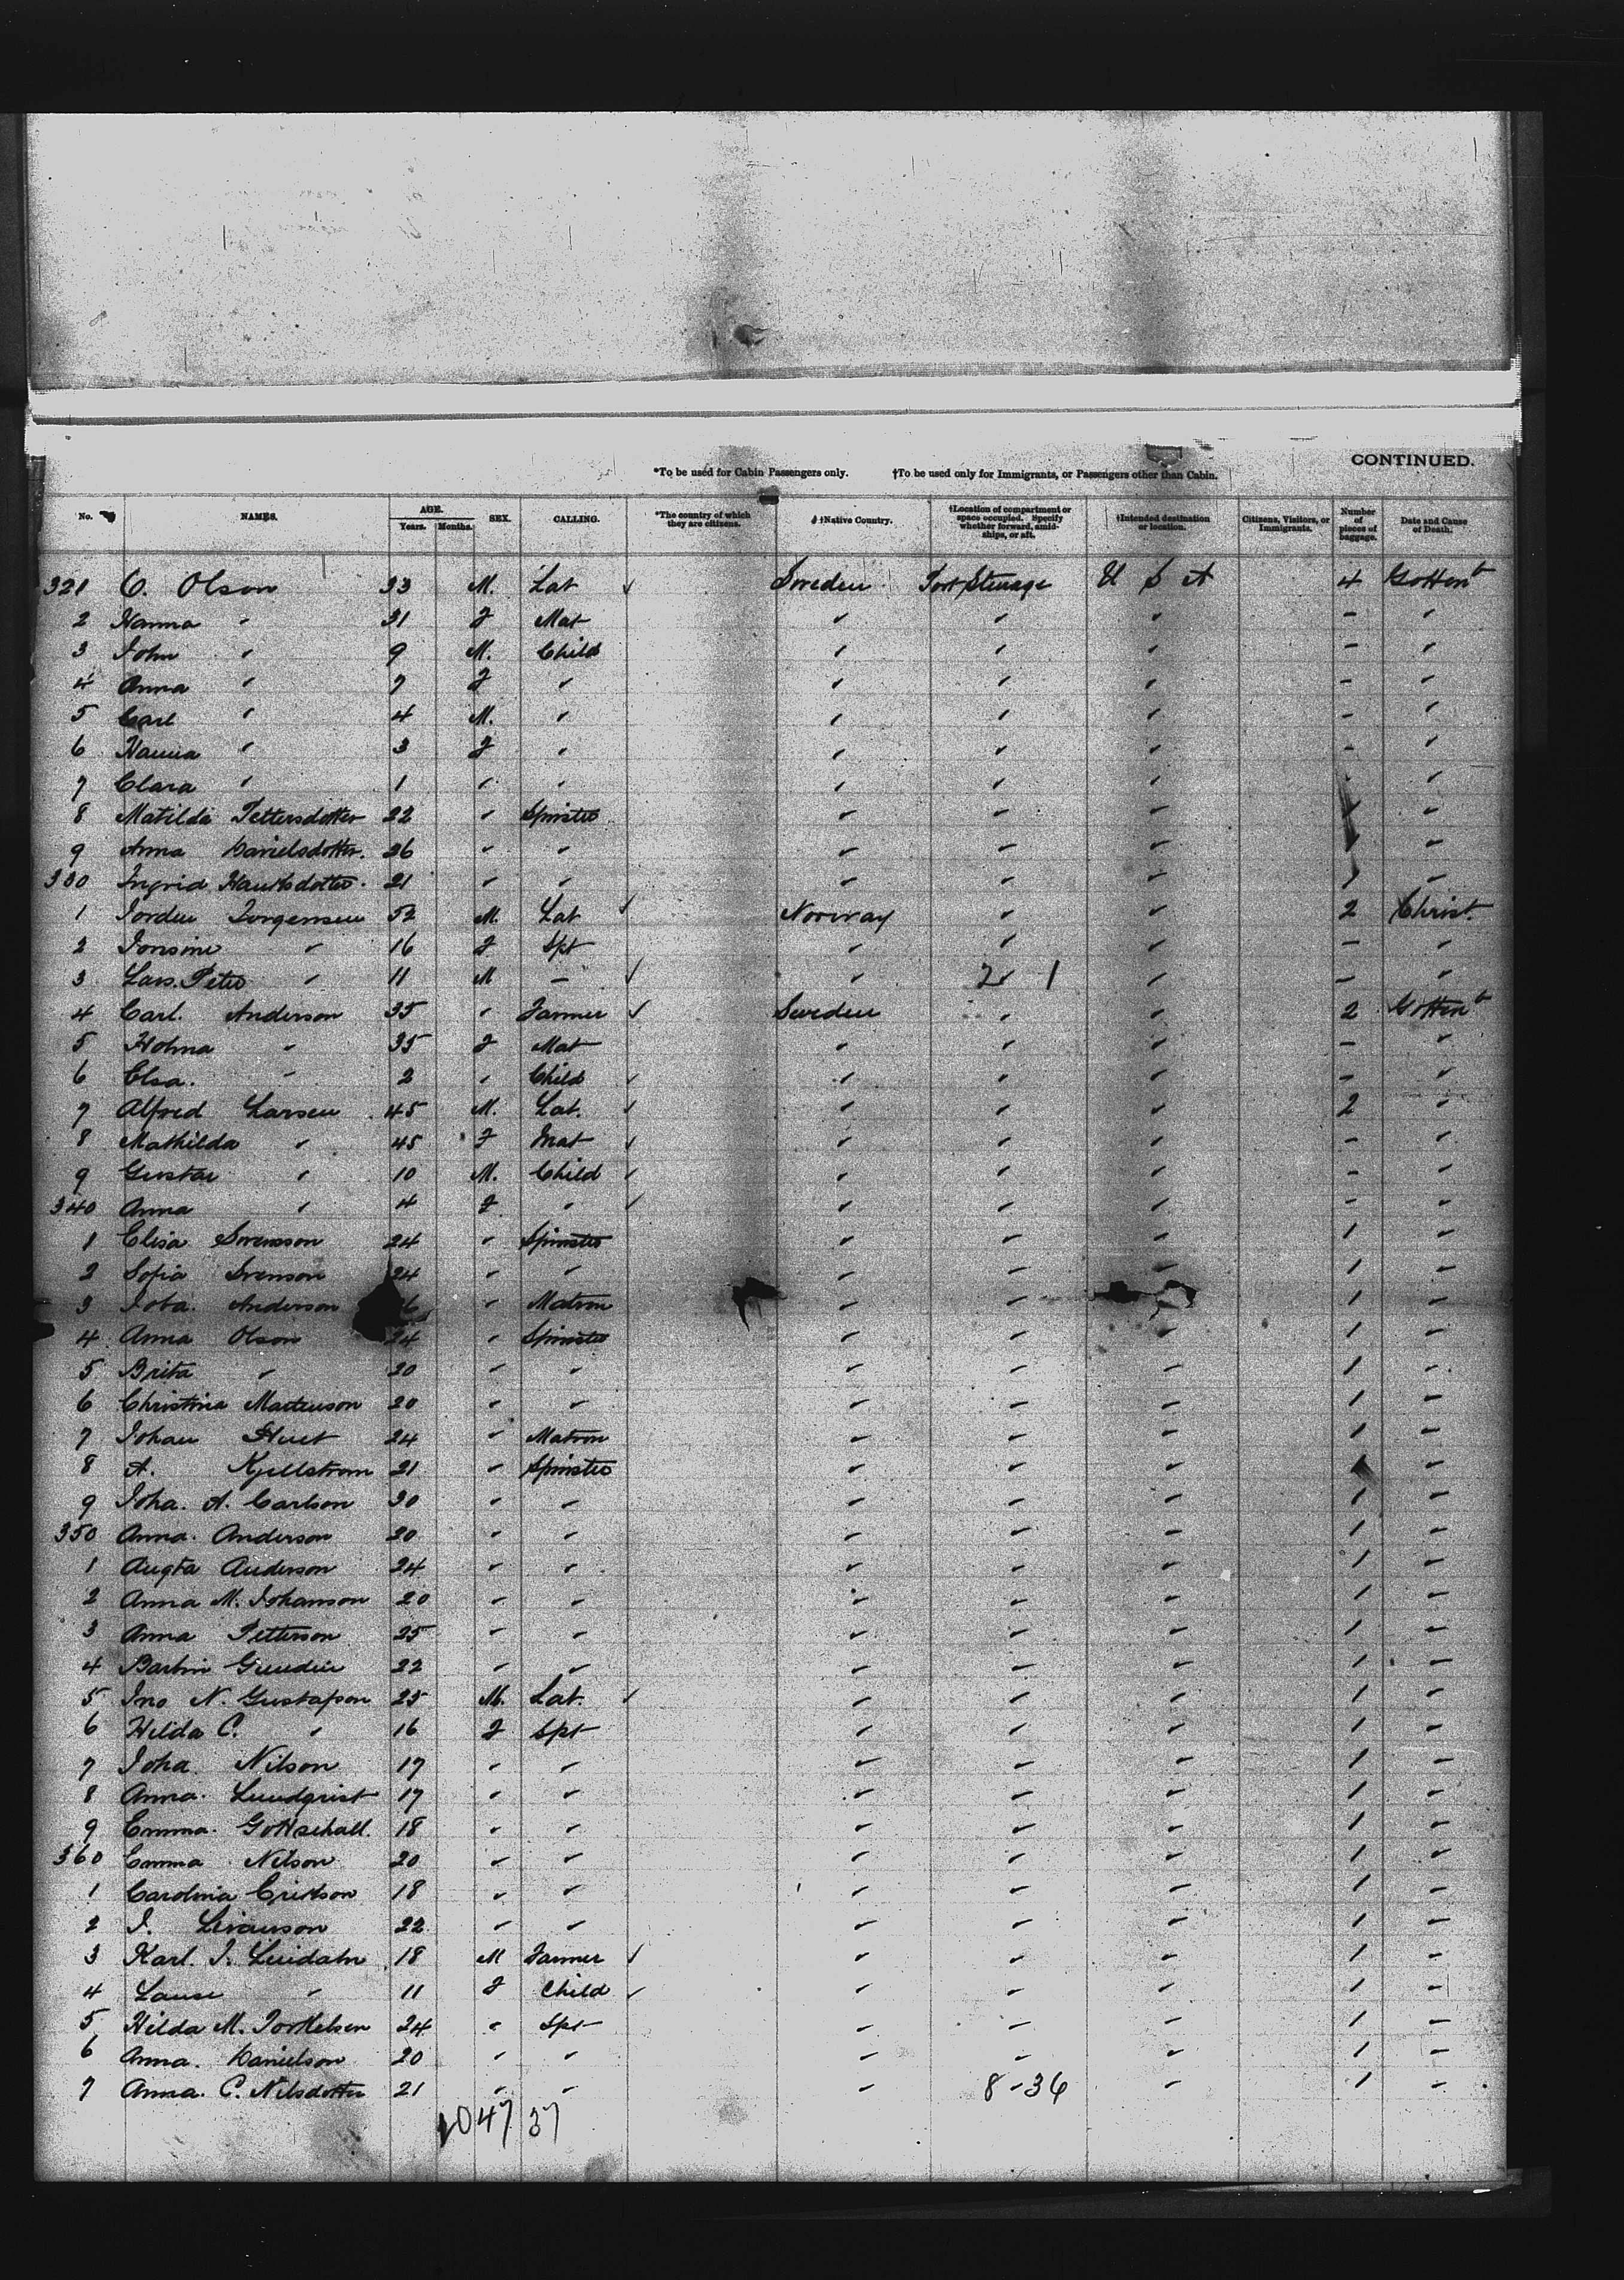 CONTINUED.
*To be used for Cabin Passengers only. †To be used only for Immigrants, or Passengers other than Cabin.
No. NAMES. AGE. Years. Months. SEX. CALLING. *The country of which they are citizens. †Native Country. †Location of compartment or space occupied. Specify whether forward, amidships, or aft. †Intended destination or location. Citizens, Visitors, or Immigrants. Number of pieces of baggage. Date and Cause of Death.
321 O. Olson 33 M. Lab ✓ Sweden Steerage U S A 4 Gottenb
2 Hanna " 31 F Mat " " " - "
3 John " 9 M. Child " " " - "
4 Anna " 7 F " " " " - "
5 Carl " 4 M. " " " " - "
6 Hanna " 3 F " " " " - "
7 Clara " 1 " " " " " "
8 Matilda Pettersdotter 22 " Spinster " " " "
9 Anna Danielsdotter. 26 " " " " " "
330 Ingrid 21 " " " " " 1 "
1 Jorden Jorgensen 52 M. Lab ✓ Norway " " 2 Christ.
2 Jonsine " 16 F Spt " " " - "
3 Lars. Peter " 11 M - ✓ " 2 1 " - "
4 Carl. Anderson 35 " Farmer ✓ Sweden " " 2 Gottenb
5 " 35 F Mat " " " - "
6 Elsa. " 2 " Child ✓ " " " - "
7 Alfred Larsen 45 M. Lab. ✓ " " " 2 "
8 Mathilda " 45 F Mat ✓ " " " - "
9 Gustav " 10 M. Child ✓ " " " - "
340 Anna " 4 F " ✓ " " " - "
1 Elisa Svensson 24 " Spinster " " " 1 "
2 Sofia Svenson 24 " " " " " 1 "
3 Anderson 6 " Matron " " " 1 "
4 Anna Olson 24 " Spinster " " " 1 "
5 Brita " 20 " " " " " 1 "
6 Christina Martenson 20 " " " " " 1 "
7 Johan 24 " Matron " " " 1 "
8 A. Kjellstrom 21 " Spinster " " " "
9 Joha. A. Carlson 30 " " " " " 1 "
350 Anna. Anderson 20 " " " " " 1 "
1 Augta Anderson 24 " " " " " 1 "
2 Anna M. Johanson 20 " " " " " 1 "
3 Anna Petterson 25 " " " " " 1 "
4 22 " " " " " 1 "
5 Jno N. Gustafson 25 M. Lab. ✓ " " " 1 "
6 Hilda C. " 16 F Spt " " " 1 "
7 Joha. Nilson 17 " " " " " 1 "
8 Anna. Lundqvist 17 " " " " " 1 "
9 Emma. Gottschall. 18 " " " " " 1 "
360 Emma Nilson 20 " " " " " 1 "
1 Carolina Erikson 18 " " " " " 1 "
2 J. 22 " " " " " 1 "
3 Karl. J. Lindahn 18 M Farmer ✓ " " " 1 "
4 " 11 F Child ✓ " " " 1 "
5 Hilda M. Torkelsen 24 " Spt " " " 1 "
6 Anna. Danielson 20 " " " " " 1 "
7 Anna. C. Nilsdotter 21 " " " 8-36 " 1 "
1047 37